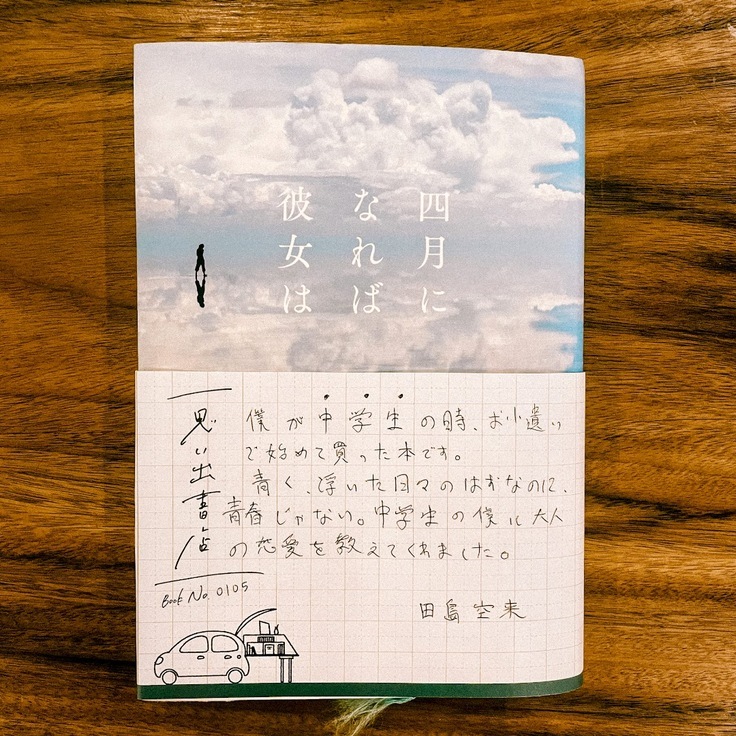 四月に
なれば
彼女は
思い出書店
Book No. 0105
僕が中学生の時、お小遣い
で始めて買った本です。
青く、浮いた日々のはずなのに、
青春じゃない。中学生の僕に大人
の恋愛を教えてくれました。
田島空来